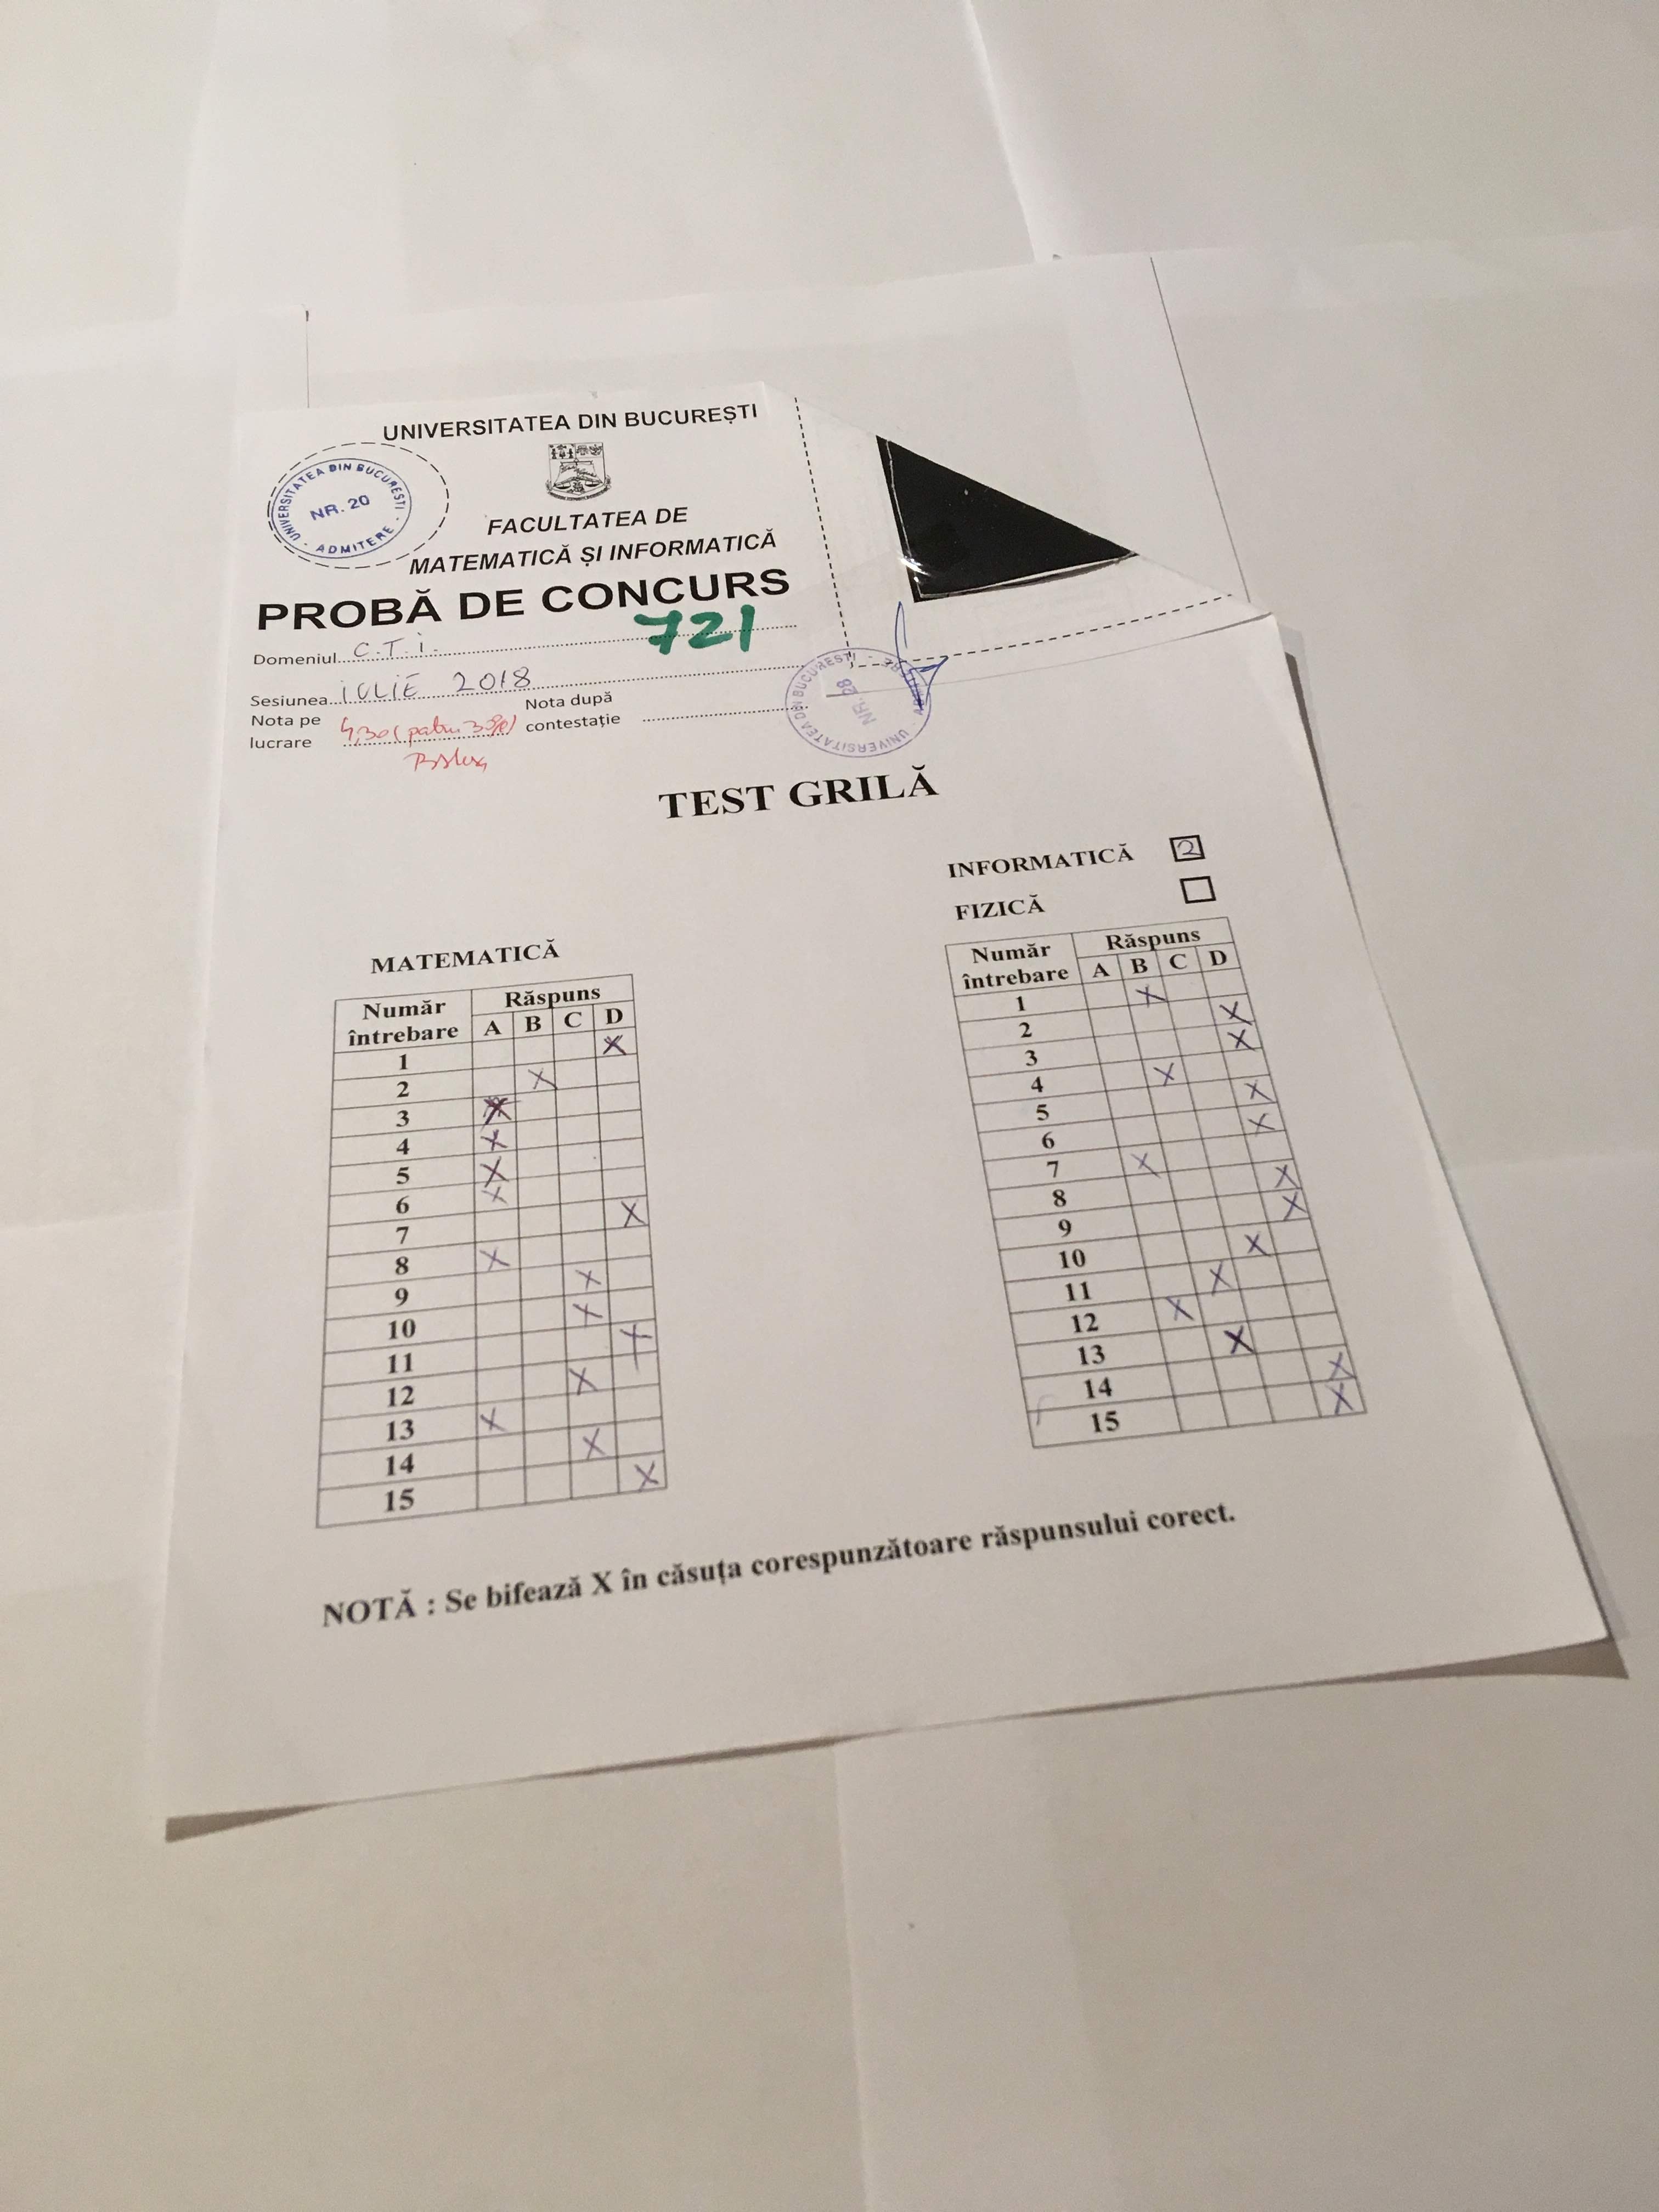 UNIVERSITATEA DIN BUCUREȘTI
UNIVERSITATEA DIN BUCUREȘTI - ADMITERE -
NR. 20
FACULTATEA DE
MATEMATICĂ ȘI INFORMATICĂ
PROBĂ DE CONCURS
721
Domeniul C.T.i.
Sesiunea iULiE 2018
Nota pe lucrare 4,30 (patru 30%)
Nota după contestație
UNIVERSITATEA DIN BUCURESTI - ADMITERE
NR. 28
TEST GRILĂ
INFORMATICĂ 2
FIZICĂ
MATEMATICĂ
Număr întrebare Răspuns
A B C D
1 X
2 X
3 X
4 X
5 X
6 X
7 X
8 X
9 X
10 X
11 X
12 X
13 X
14 X
15 X
Număr întrebare Răspuns
A B C D
1 X
2 X
3 X
4 X
5 X
6 X
7 X
8 X
9 X
10 X
11 X
12 X
13 X
14 X
15 X
NOTĂ : Se bifează X în căsuța corespunzătoare răspunsului corect.